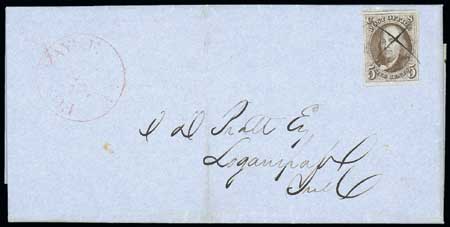 POST OFFICE
5 5
FIVE CENTS
D D Pratt Esq
Logansport
Ind